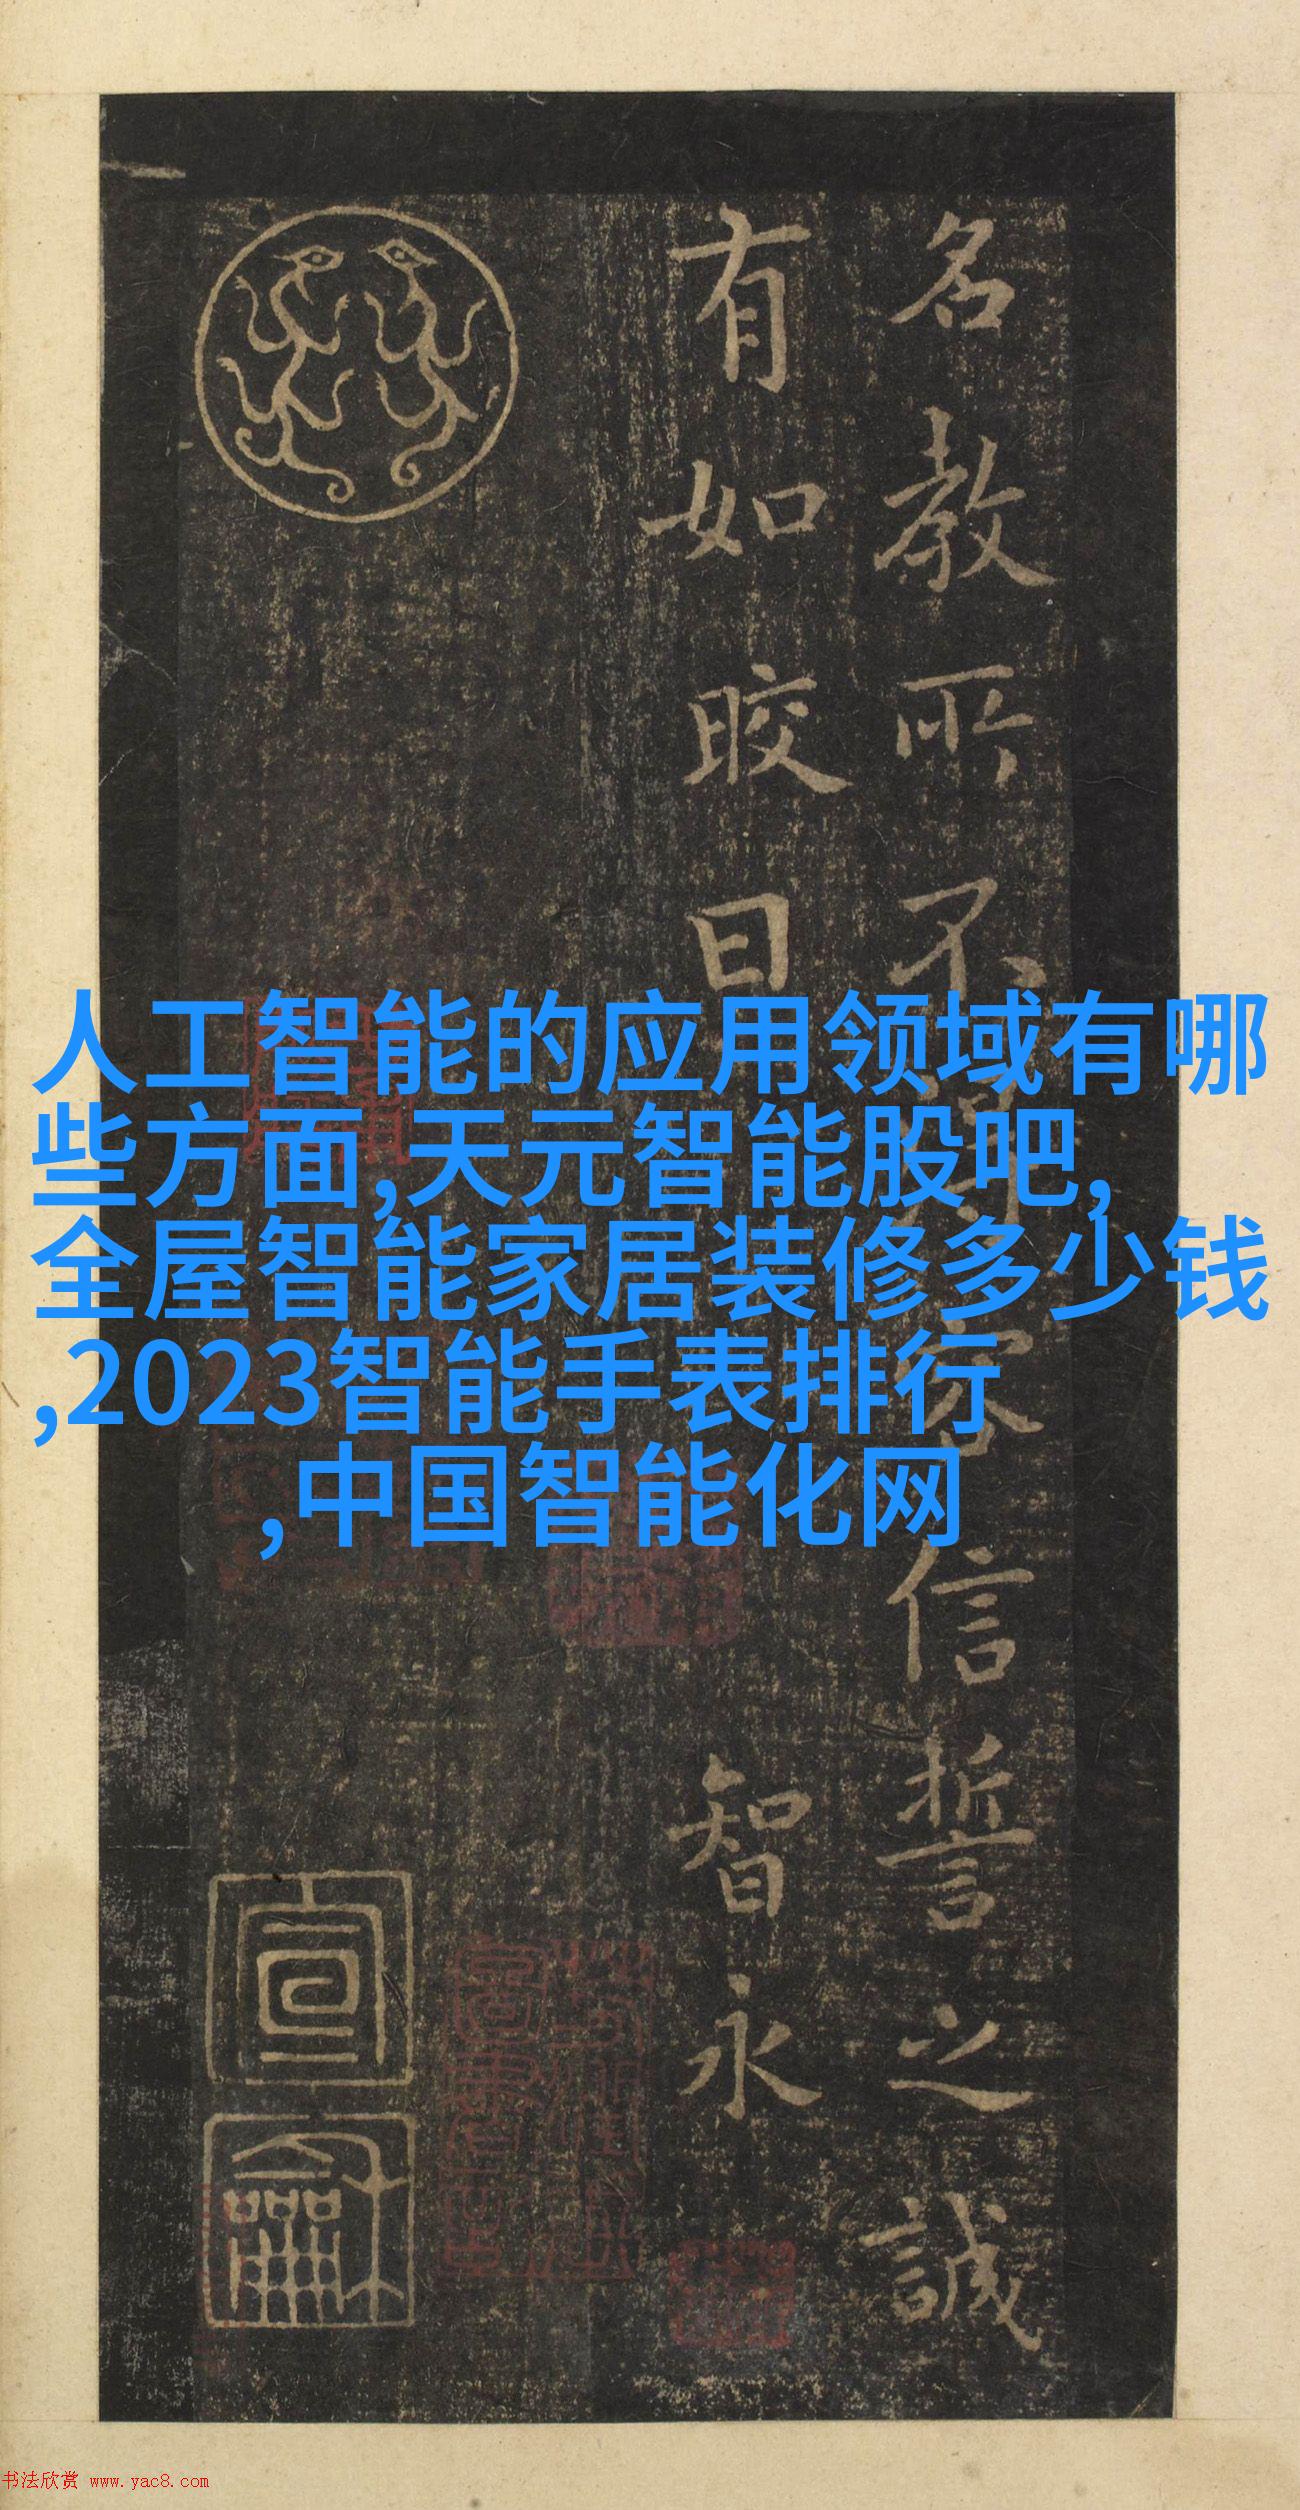 名教所不得容信誓之誠
有如晈日 智永
宣
龢
人工智能的应用领域有哪
些方面,天元智能股吧,
全屋智能家居装修多少钱
,2023智能手表排行
,中国智能化网
书法欣赏 www.yac8.com